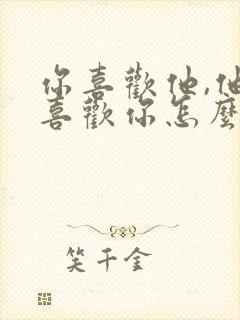 你喜歡他,他
喜歡你怎麼
笑千金